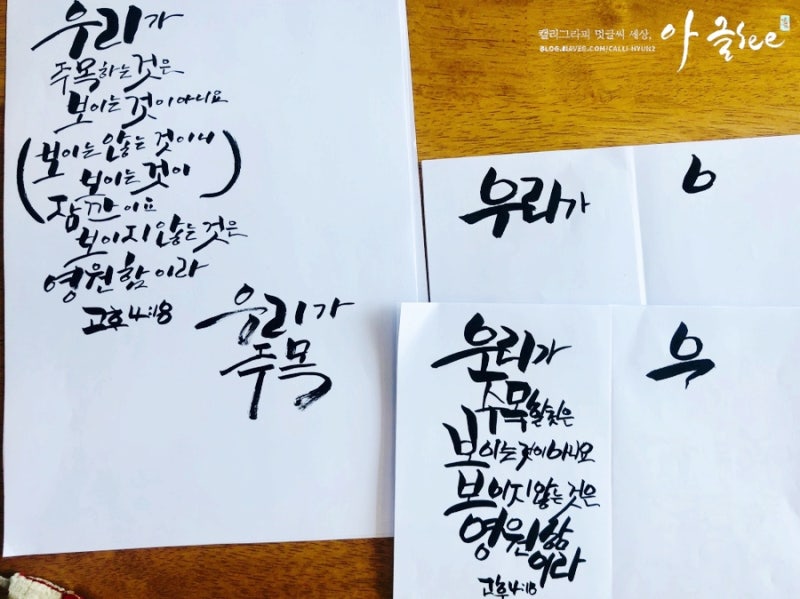 우리가
주목하는 것은
보이는 것이 아니요
보이는 않는 것이니
보이는 것이
잠깐이요
보이지 않는 것은
영원함이라
고후 4:18
우리가
주목
캘리그라피 멋글씨 세상,
BLOG.NAVER.COM/CALLI-HYUN2
아 글see
우리가
ㅇ
우리가
주목할 것은
보이는 것이 아니요
보이지 않는 것은
영원함
이라
고후 4:18
우